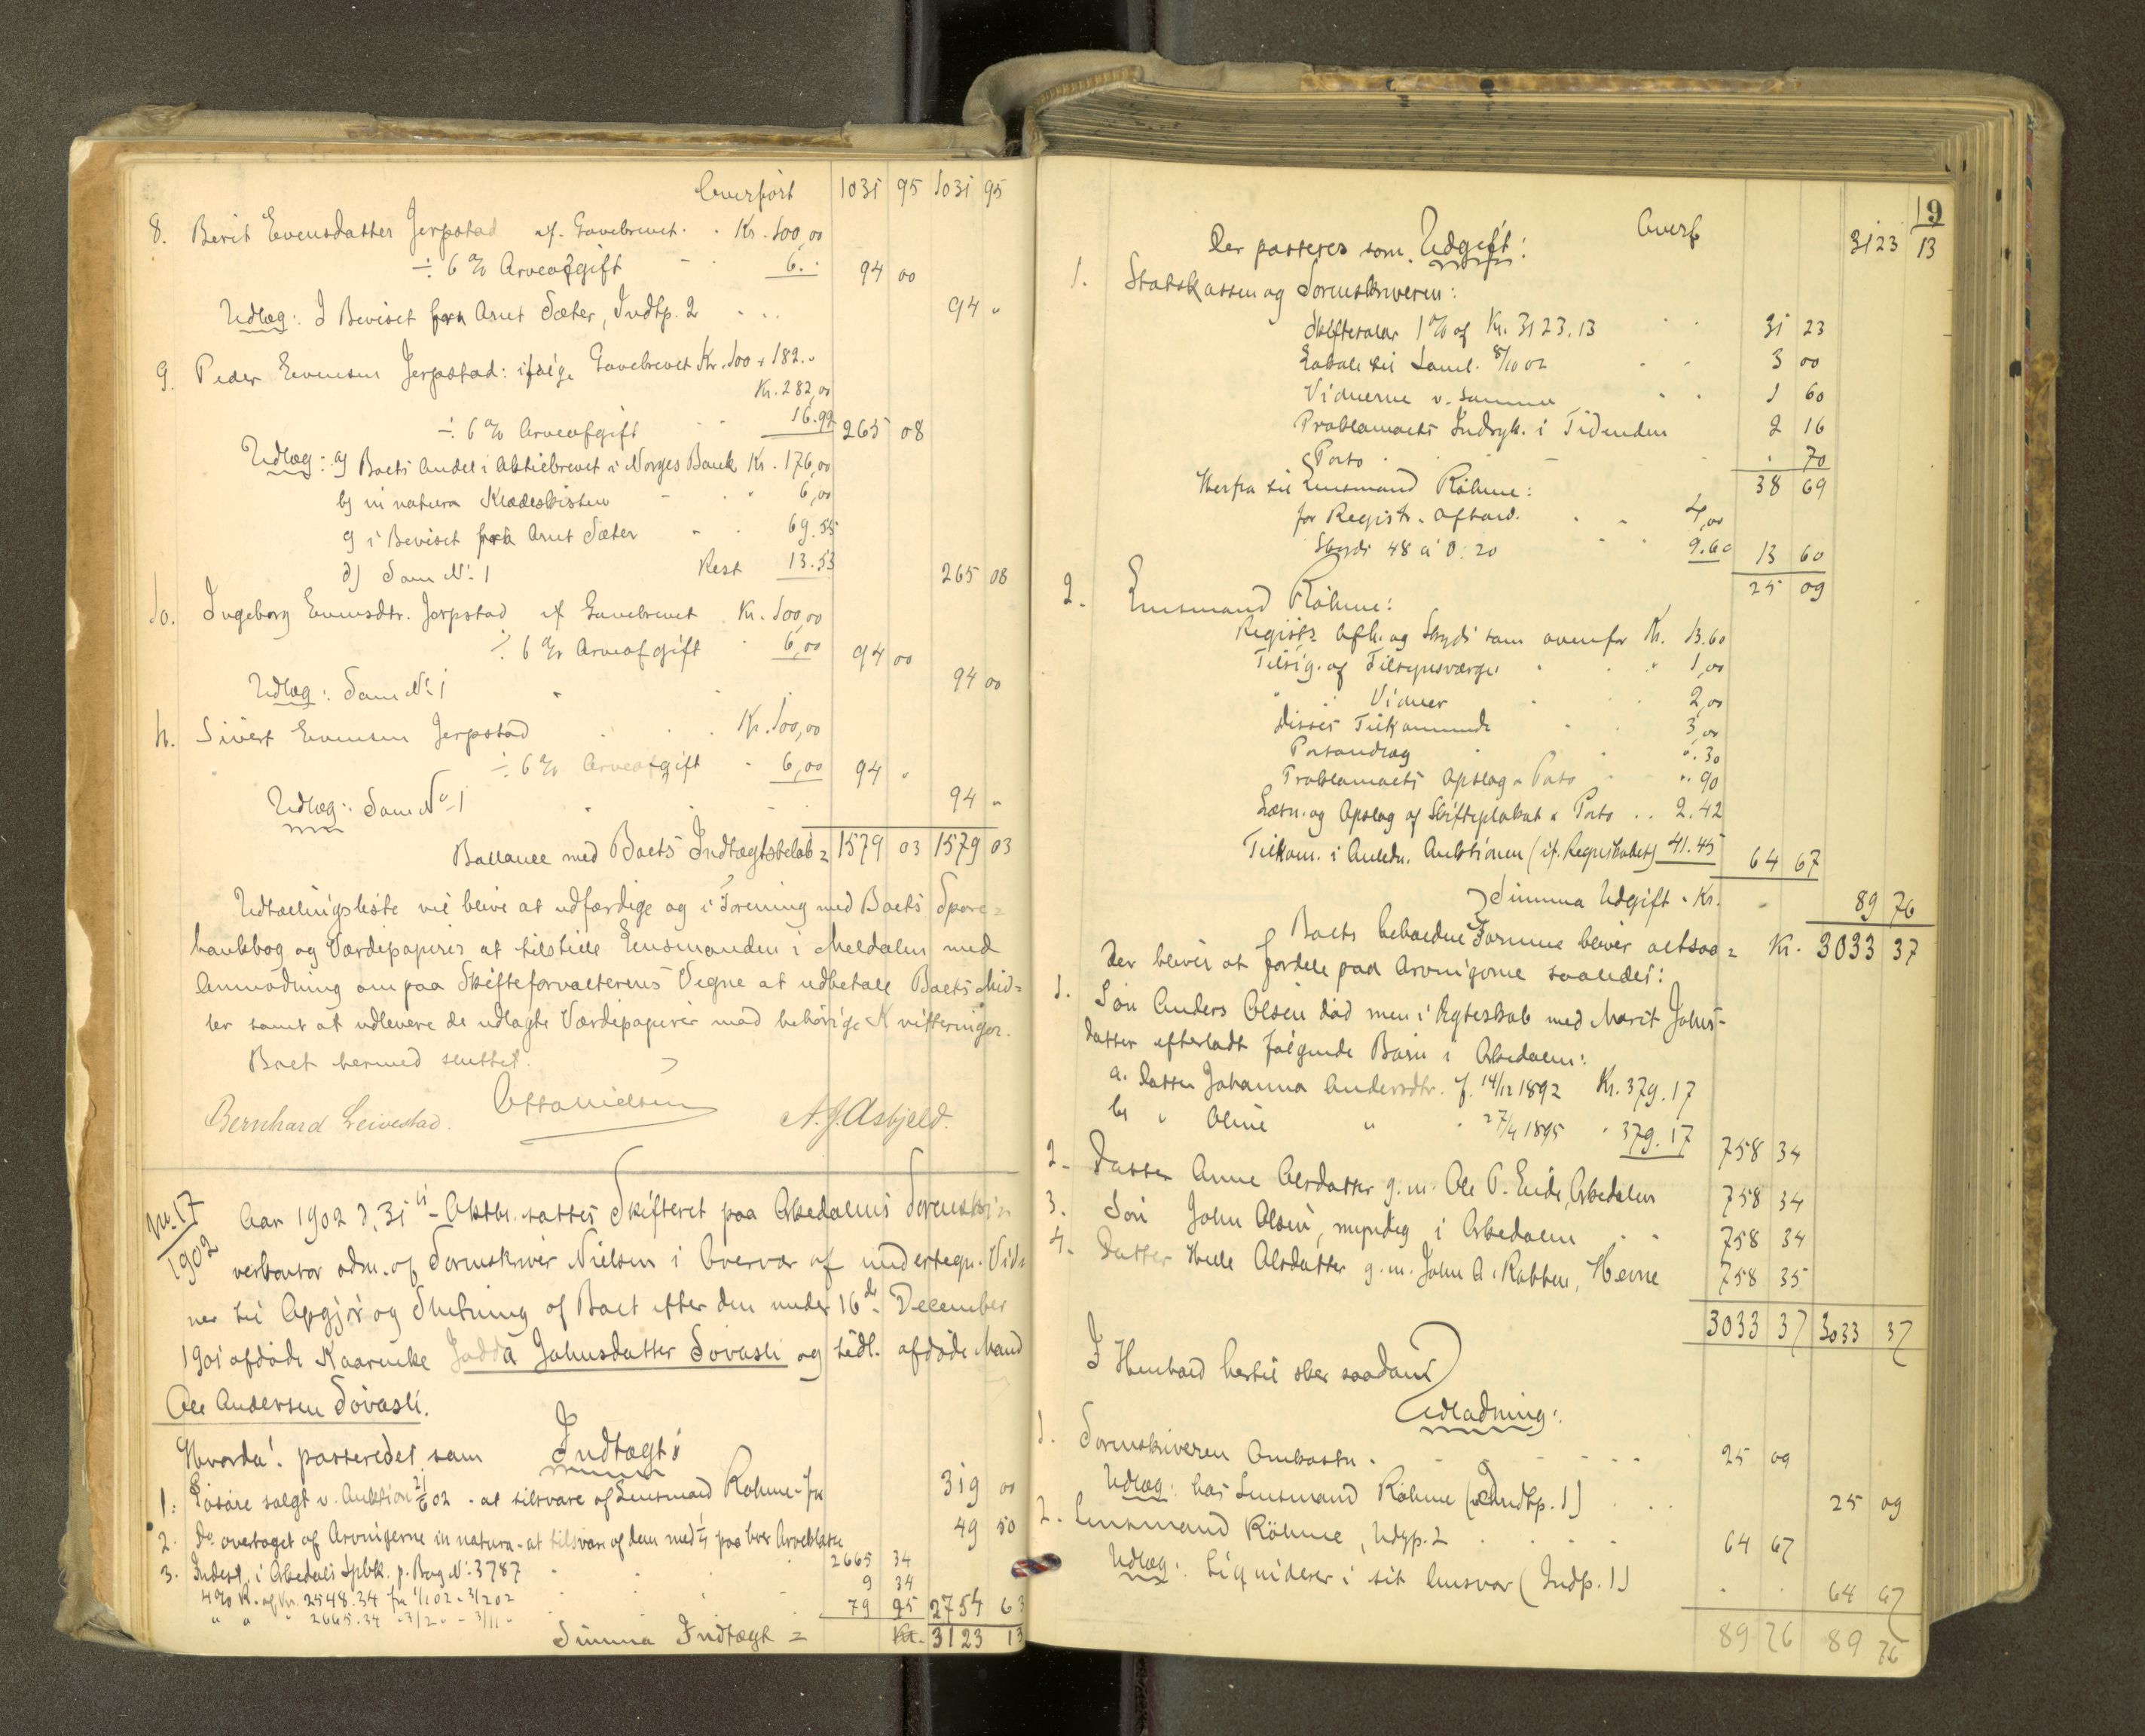 Overført 1031 95 1031 95
8. Berit Evensdatter Jerpstad if. Gavebrevet Kr. 100,00
÷ 6 % Arveafgift 6. " 94 00
Udlæg: I Beviset fra Arnt Sæter, Indtp. 2 94 "
9. Peder Evensen Jerpstad: ifølge Gavebrevet Kr. 100 + 182. "
Kr. 282,00
÷ 6 % Arveafgift 16.92 265 08
Udlæg: a) Boets Andel i Aktiebrevet i Norges Bank Kr. 176,00
b) in natura Klædeskisten 6,00
c) i Beviset fra Arnt Sæter 69.55
d) Som No 1 Rest 13.53 265 08
10. Ingeborg Evensdtr. Jerpstad if Gavebrevet Kr. 100,00
÷ 6 % Arveafgift 6,00 94 00
Udlæg: Som No 1 94 00
11. Sivert Evensen Jerpstad Kr. 100,00
÷ 6 % Arveafgift 6,00 94 "
Udlæg: Som No 1 94 "
Ballance med Boets Indtægtsbeløb = 1579 03 1579 03
Udlodningsliste vil blive at udfærdige og i Forening med Boets Spare=
bankbog og Værdipapirer at tilstille Lensmanden i Meldalen med
Anmodning om paa Skifteforvalterens Vegne at udbetale Boets Mid=
ler samt at udlevere de udlagte Værdipapirer mod behørige Kvitteringer.
Boet hermed sluttet.
Otto Nielsen
Bernhard Leivestad. A. J. Asbjeld.
No. 17
1902
Aar 1902 d. 31te Oktbr. sattes Skifteret paa Orkedalens Sorenskri=
verkontor adm. af Sorenskriver Nielsen i Overvær af undertegn. Vid=
ner til Opgjør og Slutning af Boet efter den under 16de December
1901 afdøde Kaarenke Jadda Johnsdatter Sovasli og tidl. afdøde Mand
Ole Andersen Sovasli.
Hvorda! passeredes som Indtægt:
1. Løsøre solgt v. Auktion 21/6 02 - at tilsvare af Lensmand Røhme - Kr 319 00
2. Do overtaget af Arvingerne in natura - at tilsvare af dem med 1/4 paa hver Arvelod 49 50
3. Indest. i Orkedals Spbk. p. Bog No: 3787 2665 34
4% R. af Kr. 2548.34 fra 1/1 02 - 3/2 02 9 34
" " " 2665.34 " 3/2 " - 3/11 " 79 95 2754 63
Summa Indtægt = Kr. 3123 13
19
Overf 3123 13
Der passeres som Udgift:
1. Statskassen og Sorenskriveren:
Skiftesalær 1% af Kr. 3123.13 31 23
8/10 02 3 00
Vidnerne v. Samme 1 60
Proklamaets Indryk. i Tidenden 2 16
Porto " 70
38 69
Herfra til Lensmand Røhme:
for Registr. Afhold. 4,00
Skyds 48 a 0.20 9.60 13 60
25 09
2. Lensmand Røhme:
Registr. Afh. og Skyds som ovenfor Kr. 13.60
Tilsig. af Tilsynsværge 1,00
" " Vidner 2,00
Disses Tilkommende 3,00
Portoudlæg ". 30
Proklamaets Opslag + Porto ". 90
Læsn. og Opslag af Skifteplakat + Porto 2.42
Tilkom. i Anledn. Auktionen (if. Regnskabet) 41.45 64 67
Summa Udgift - Kr. 89 76
Boets beholdne Formue bliver altsaa = Kr. 3033 37
Der bliver at fordele paa Arvingerne saaledes:
1. Søn Anders Olsen død men i Ægteskab med Marit Johns-
datter efterladt følgende Børn i Orkedalen:
a. Datter Johanna Andersdtr. f. 14/12 1892 Kr. 379.17
b. " Oline " " 27/4 1895 " 379.17 758 34
2. Datter Anne Olsdatter g. m. Ole P. Eide, Orkedalen 758 34
3. Søn John Olsen, myndig i Orkedalen 758 34
4. Datter Olsdatter g. m. John A. Rabben, Hevne 758 35
3033 37 3033 37
I Henhold hertil sker saadan
Udlodning:
1. Sorenskriveren Omkostn. 25 09
Udlæg: hos Lensmand Røhme (Indtp. 1) 25 09
2. Lensmand Røhme, Udgp. 2 64 67
Udlæg: Liquiderer i sit Ansvar (Indp. 1) 64 67
89 76 89 76